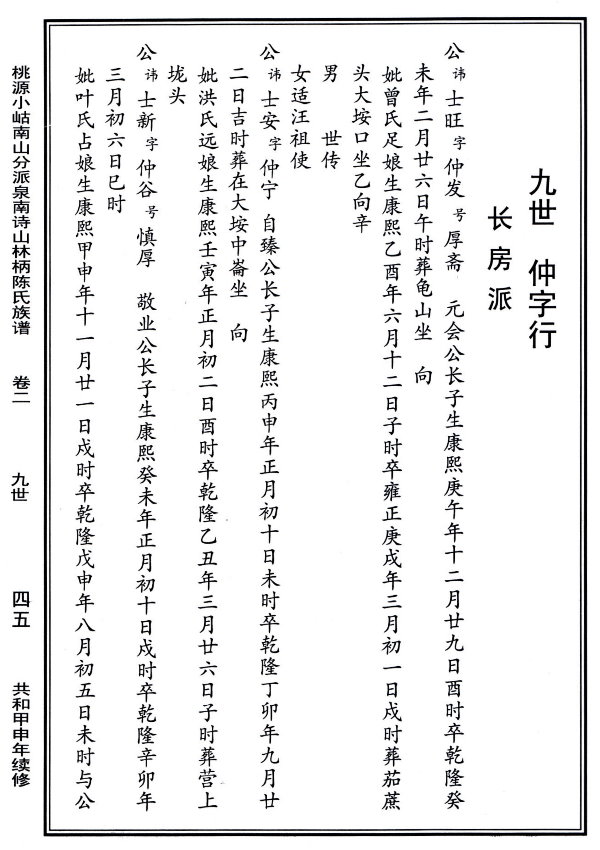 九世　仲字行
长房派
公讳士旺字仲发号厚斋　元会公长子生康熙庚午年十二月廿九日酉时卒乾隆癸
未年二月廿六日午时葬龟山坐　向
妣曾氏足娘生康熙乙酉年六月十二日子时卒雍正庚戌年三月初一日戌时葬茄蔗
头大垵口坐乙向辛
男　世传
女适汪祖使
公讳士安字仲宁　自臻公长子生康熙丙申年正月初十日未时卒乾隆丁卯年九月廿
二日吉时葬在大垵中崙坐　向
妣洪氏远娘生康熙壬寅年正月初二日酉时卒乾隆乙丑年三月廿六日子时葬营上
垅头
公讳士新字仲谷号慎厚　敬业公长子生康熙癸未年正月初十日戌时卒乾隆辛卯年
三月初六日巳时
妣叶氏占娘生康熙甲申年十一月廿一日戌时卒乾隆戊申年八月初五日未时与公
桃源小岵南山分派泉南诗山林柄陈氏族谱　卷二　九世　四五　共和甲申年续修